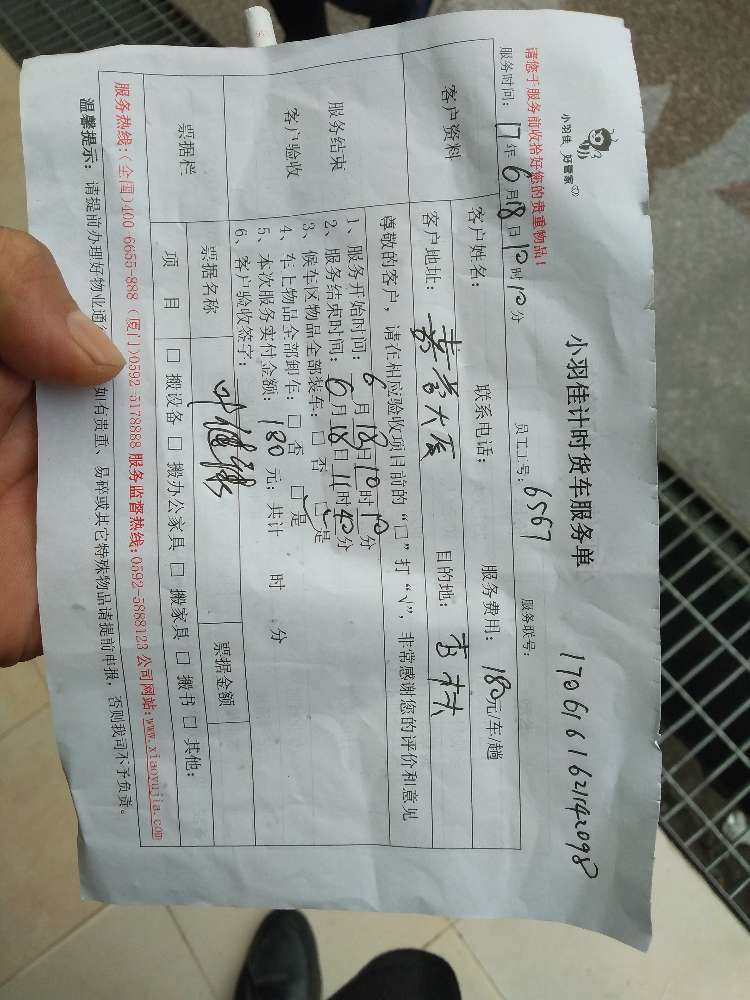 小羽佳 好管家
小羽佳计时货车服务单
1706161621142098
请您于服务前收拾好您的贵重物品！
服务时间：17年6月18日10时10分 员工工号：6567 服务联号：
客户资料 客户姓名： 联系电话： 服务费用：180元/车/趟
客户地址：大厦 目的地：
尊敬的客户，请在相应验收项目前的“口”打“√”，非常感谢您的评价和意见
服务结束
客户验收
1、服务开始时间：6月18日10时10分
2、服务结束时间：6月18日11时40分
3、候车区物品全部装车：□ 否 □ 是
4、车上物品全部卸车：□ 否 □ 是
5、本次服务实付金额：180元；共计 时 分
6、客户验收签字：
票据栏 票据名称 票据金额
项 目 □ 搬设备 □ 搬办公家具 □ 搬家具 □ 搬书 □ 其他：
服务热线：（全国）400-6655-888（厦门）0592-5178888 服务监督热线：0592-5888123 公司网站：www.xiaoyujia.com
温馨提示：请提前办理好物业通 如有贵重、易碎或其它特殊物品请提前申报，否则我司不予负责。